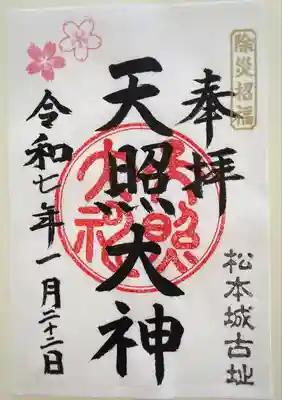 除災招福
奉拝
松本城古址
天照大神
令和七年一月二十二日